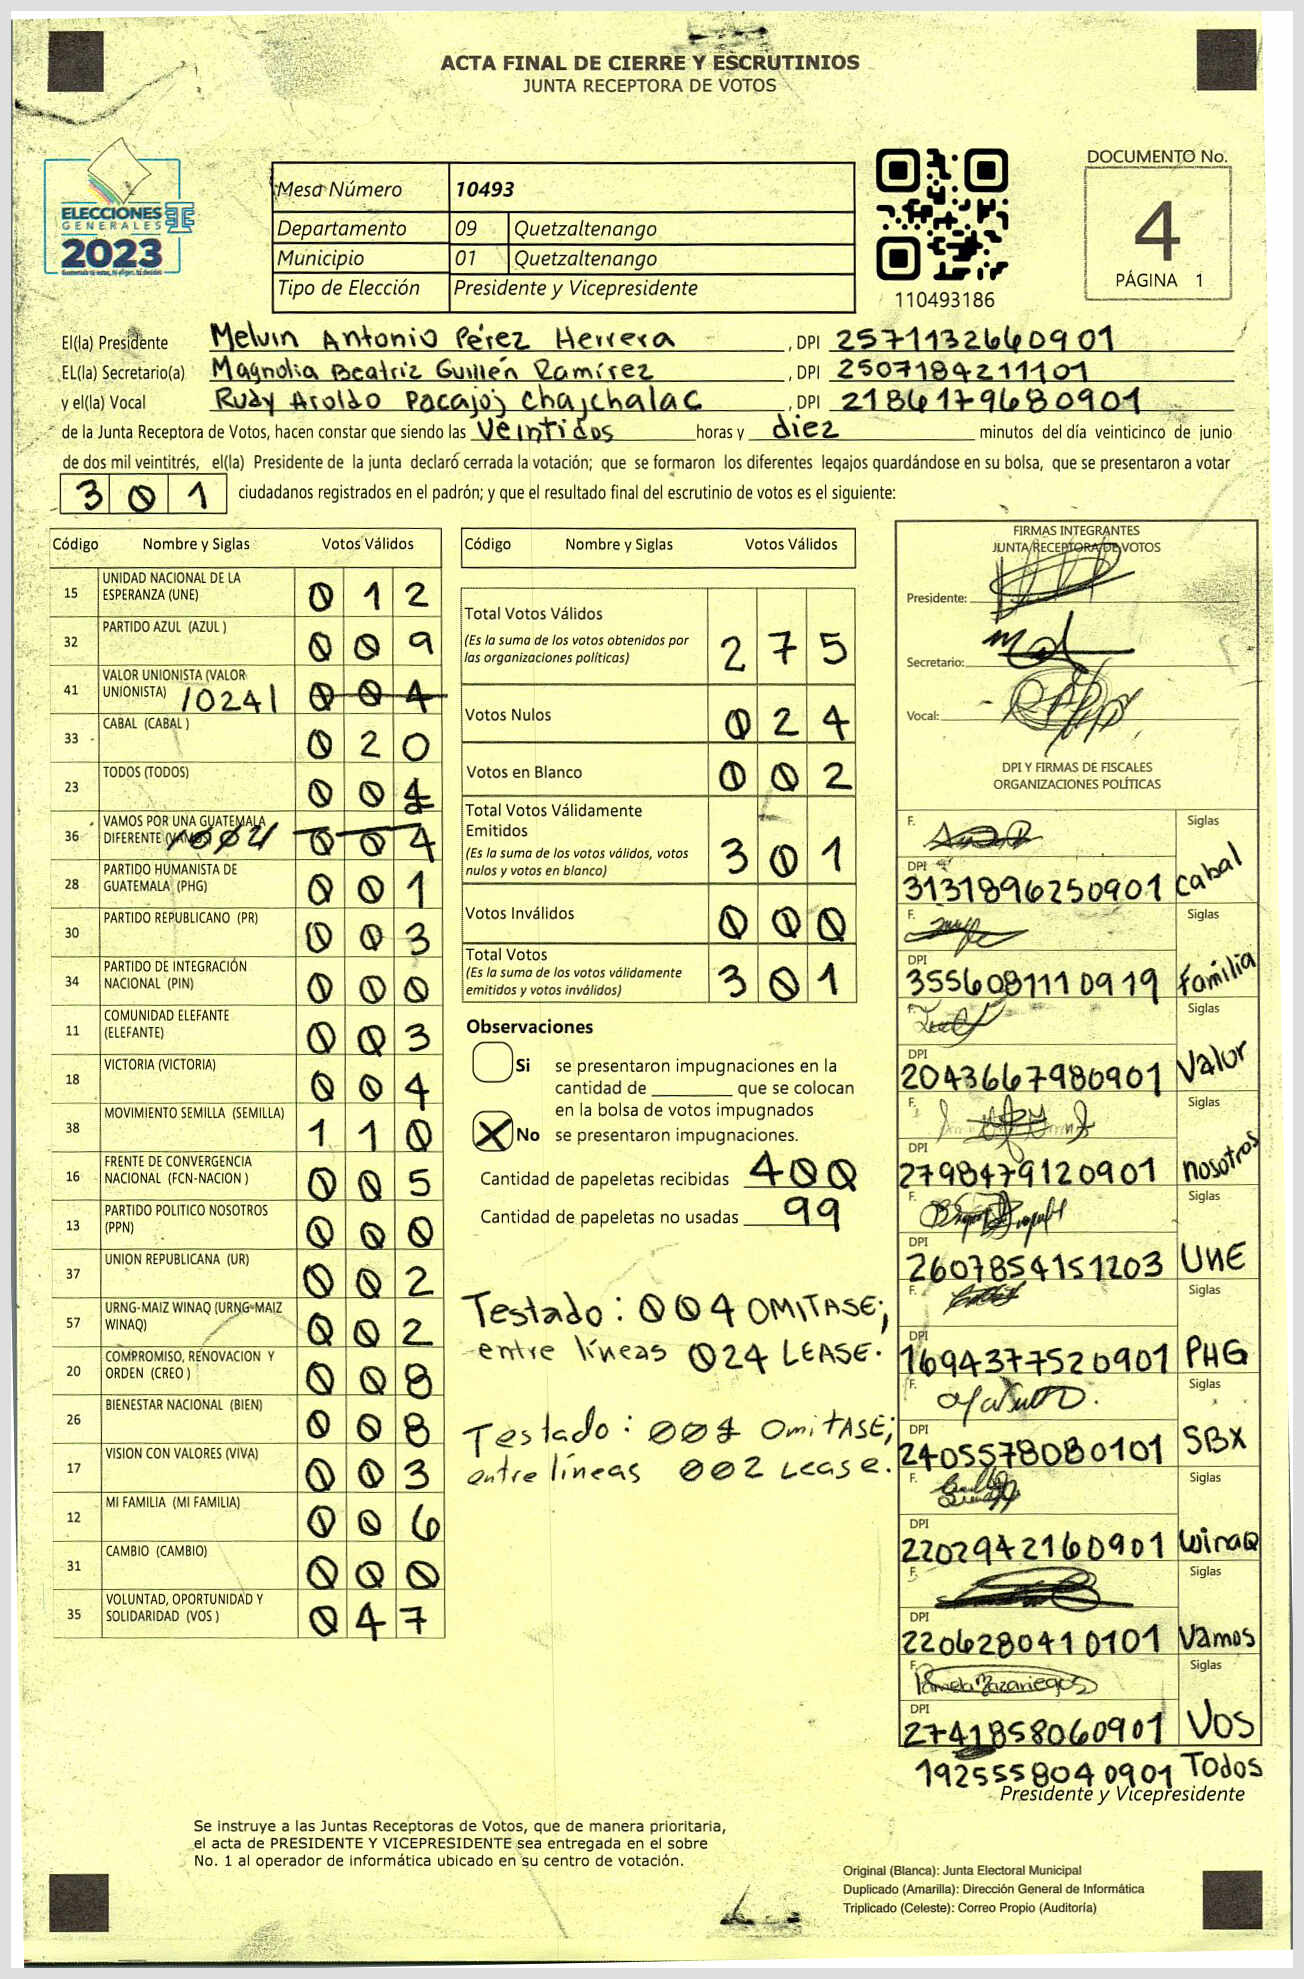 ACTA FINAL DE CIERRE Y ESCRUTINIOS
JUNTA RECEPTORA DE VOTOS
DOCUMENTO No.
4
PÁGINA 1
ELECCIONES
GENERALES
2023
Mesa Número 10493
Departamento 09 Quetzaltenango
Municipio 01 Quetzaltenango
Tipo de Elección Presidente y Vicepresidente
110493186
El(la) Presidente Melvin Antonio Pérez Herrera, DPI 2571132660901
EL(la) Secretario(a) Magnolia Beatriz Guillén Ramírez, DPI 2507184211101
y el(la) Vocal Rudy Aroldo Pacajoj Chajchalac, DPI 2186179680901
de la Junta Receptora de Votos, hacen constar que siendo las Veintidos horas y diez minutos del día veinticinco de junio
de dos mil veintitrés, el(la) Presidente de la junta declaró cerrada la votación; que se formaron los diferentes legajos guardándose en su bolsa, que se presentaron a votar
301 ciudadanos registrados en el padrón; y que el resultado final del escrutinio de votos es el siguiente:
Código Nombre y Siglas Votos Válidos
15 UNIDAD NACIONAL DE LA ESPERANZA (UNE) 012
32 PARTIDO AZUL (AZUL ) 009
41 VALOR UNIONISTA (VALOR UNIONISTA) 10241 004
33 CABAL (CABAL ) 020
23 TODOS (TODOS) 004
36 VAMOS POR UNA GUATEMALA DIFERENTE (VAMOS) 004
28 PARTIDO HUMANISTA DE GUATEMALA (PHG) 001
30 PARTIDO REPUBLICANO (PR) 003
34 PARTIDO DE INTEGRACIÓN NACIONAL (PIN) 000
11 COMUNIDAD ELEFANTE (ELEFANTE) 003
18 VICTORIA (VICTORIA) 004
38 MOVIMIENTO SEMILLA (SEMILLA) 110
16 FRENTE DE CONVERGENCIA NACIONAL (FCN-NACION ) 005
13 PARTIDO POLITICO NOSOTROS (PPN) 000
37 UNION REPUBLICANA (UR) 002
57 URNG-MAIZ WINAQ (URNG-MAIZ WINAQ) 002
20 COMPROMISO, RENOVACION Y ORDEN (CREO ) 008
26 BIENESTAR NACIONAL (BIEN) 008
17 VISION CON VALORES (VIVA) 003
12 MI FAMILIA (MI FAMILIA) 006
31 CAMBIO (CAMBIO) 000
35 VOLUNTAD, OPORTUNIDAD Y SOLIDARIDAD (VOS ) 047
Código Nombre y Siglas Votos Válidos
Total Votos Válidos 275
(Es la suma de los votos obtenidos por las organizaciones políticas)
Votos Nulos 024
Votos en Blanco 002
Total Votos Válidamente Emitidos 301
(Es la suma de los votos válidos, votos nulos y votos en blanco)
Votos Inválidos 000
Total Votos 301
(Es la suma de los votos válidamente emitidos y votos inválidos)
Observaciones
Si se presentaron impugnaciones en la
cantidad de ________ que se colocan
en la bolsa de votos impugnados
X No se presentaron impugnaciones.
Cantidad de papeletas recibidas 400
Cantidad de papeletas no usadas 99
Testado: 004 OMITASE;
entre líneas 024 LEASE.
Testado: 004 OmitASE;
entre líneas 002 Lease.
FIRMAS INTEGRANTES
JUNTA RECEPTORA DE VOTOS
Presidente:
Secretario:
Vocal:
DPI Y FIRMAS DE FISCALES
ORGANIZACIONES POLÍTICAS
F. Siglas
DPI 3131896250901 Cabal
F. Siglas
DPI 3556081110919 Familia
F. Siglas
DPI 2043667980901 Valor
F. Siglas
DPI 2798479120901 nosotros
F. Siglas
DPI 2607854151203 UNE
F. Siglas
DPI 1694377520901 PHG
F. Siglas
DPI 2405578080101 SBX
F. Siglas
DPI 2202942160901 WinaQ
F. Siglas
DPI 2206280410101 Vamos
F. Pamela Mazariegos Siglas
DPI 2741858060901 VOS
1925558040901 Todos
Presidente y Vicepresidente
Se instruye a las Juntas Receptoras de Votos, que de manera prioritaria,
el acta de PRESIDENTE Y VICEPRESIDENTE sea entregada en el sobre
No. 1 al operador de informática ubicado en su centro de votación.
Original (Blanca): Junta Electoral Municipal
Duplicado (Amarilla): Dirección General de Informática
Triplicado (Celeste): Correo Propio (Auditoría)